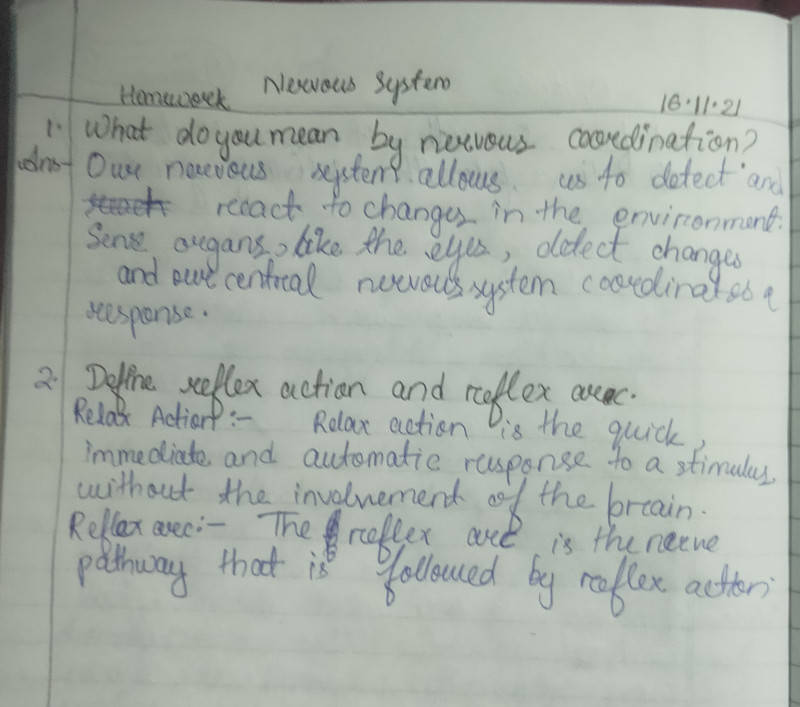 Nervous System
Homework 16.11.21
1. What do you mean by nervous coordination?
Ans- Our nervous system allows us to detect and
react to changes in the environment.
Sense organs, like the eyes, detect changes
and our central nervous system coordinates a
response.
2. Define reflex action and reflex arc.
Relax Action:- Relax action is the quick,
immediate and automatic response to a stimulus
without the involvement of the brain.
Reflex arc:- The reflex arc is the nerve
pathway that is followed by reflex action